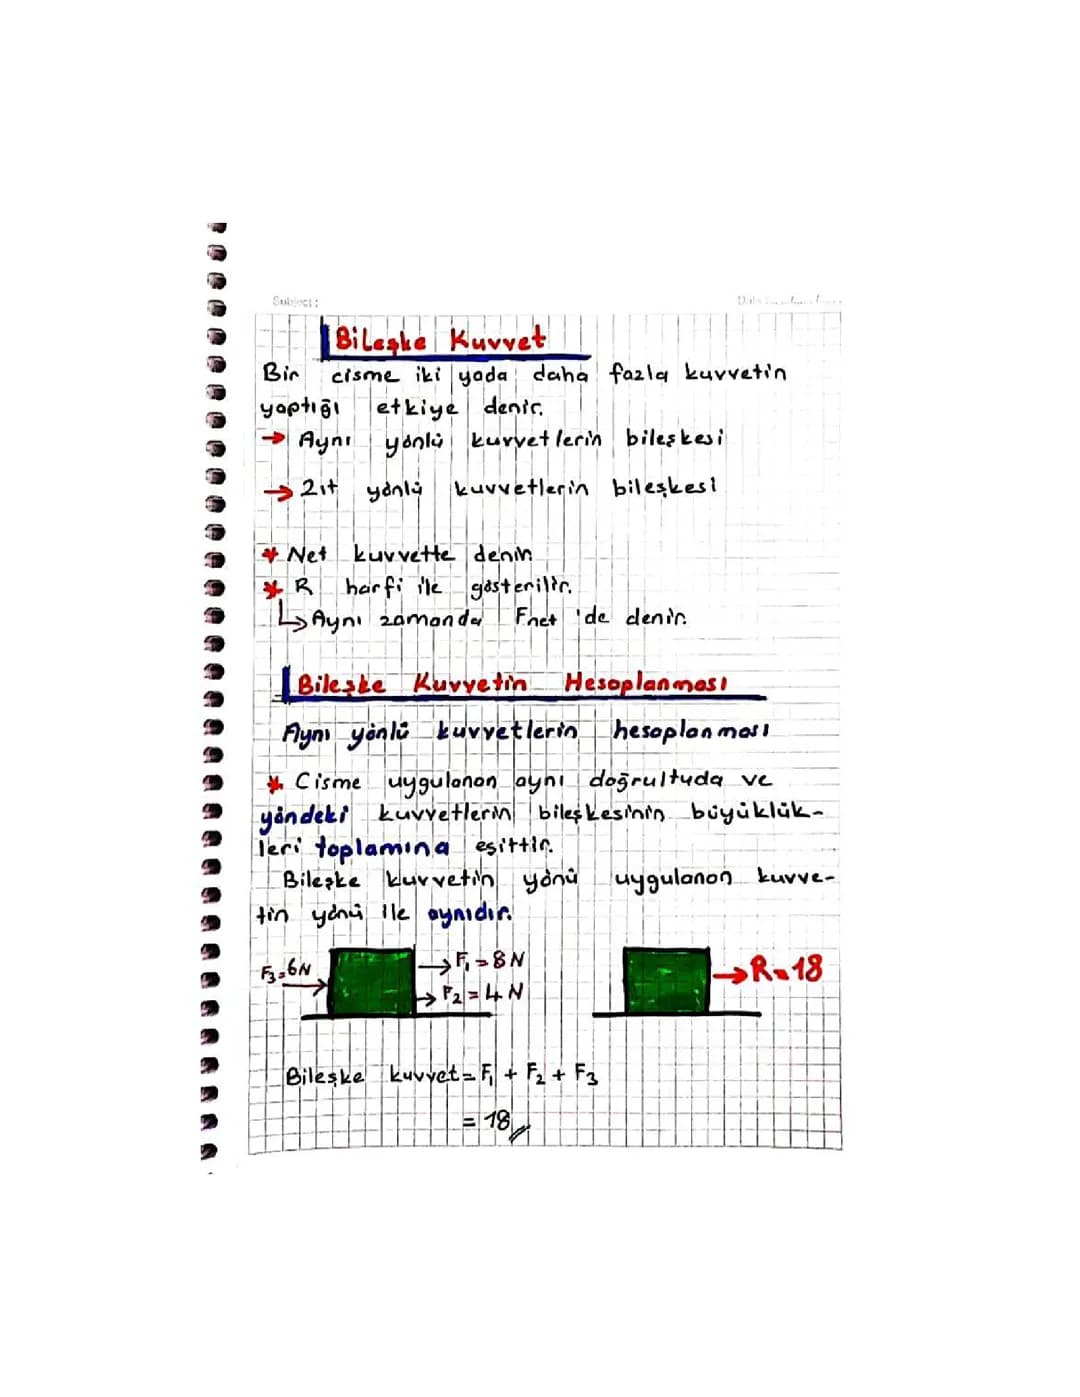 Subject:
Bileşke Kuvvet
Bir cisme iki yada daha fazla kuvvetin
yaptığı etkiye denir.
→ Aynı yönlü kuvvetlerin bileşkesi
→ Zıt yönlü kuvvetlerin bileşkesi
* Net kuvvette denir
* R harfi ile gösterilir.
↳ Aynı zamanda Fnet 'de denir.
Bileşke Kuvvetin Hesaplanması
Aynı yönlü kuvvetlerin hesaplanması
* Cisme uygulanan aynı doğrultuda ve
yöndeki kuvvetlerin bileşkesinin büyüklük-
leri toplamına eşittir.
Bileşke kuvvetin yönü uygulanan kuvve-
tin yönü ile aynıdır.
F₃=6N → → F₁=8N → R=18
→ F₂=4N
Bileşke kuvvet= F₁ + F₂ + F₃
= 18